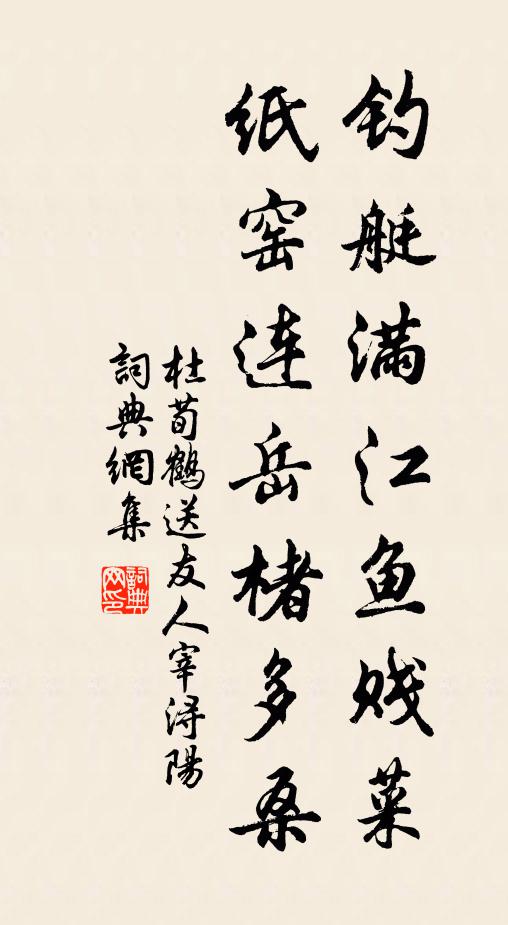 钓艇满江鱼贱菜
纸窑连岳楮多桑
杜荀鶴送友人宰潯陽
詞典網集
詞典
网印